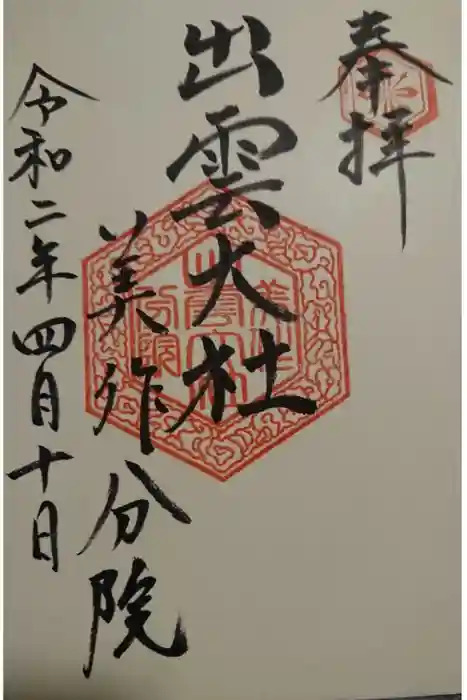 奉拝
出雲大社
美作分院
令和二年四月十日